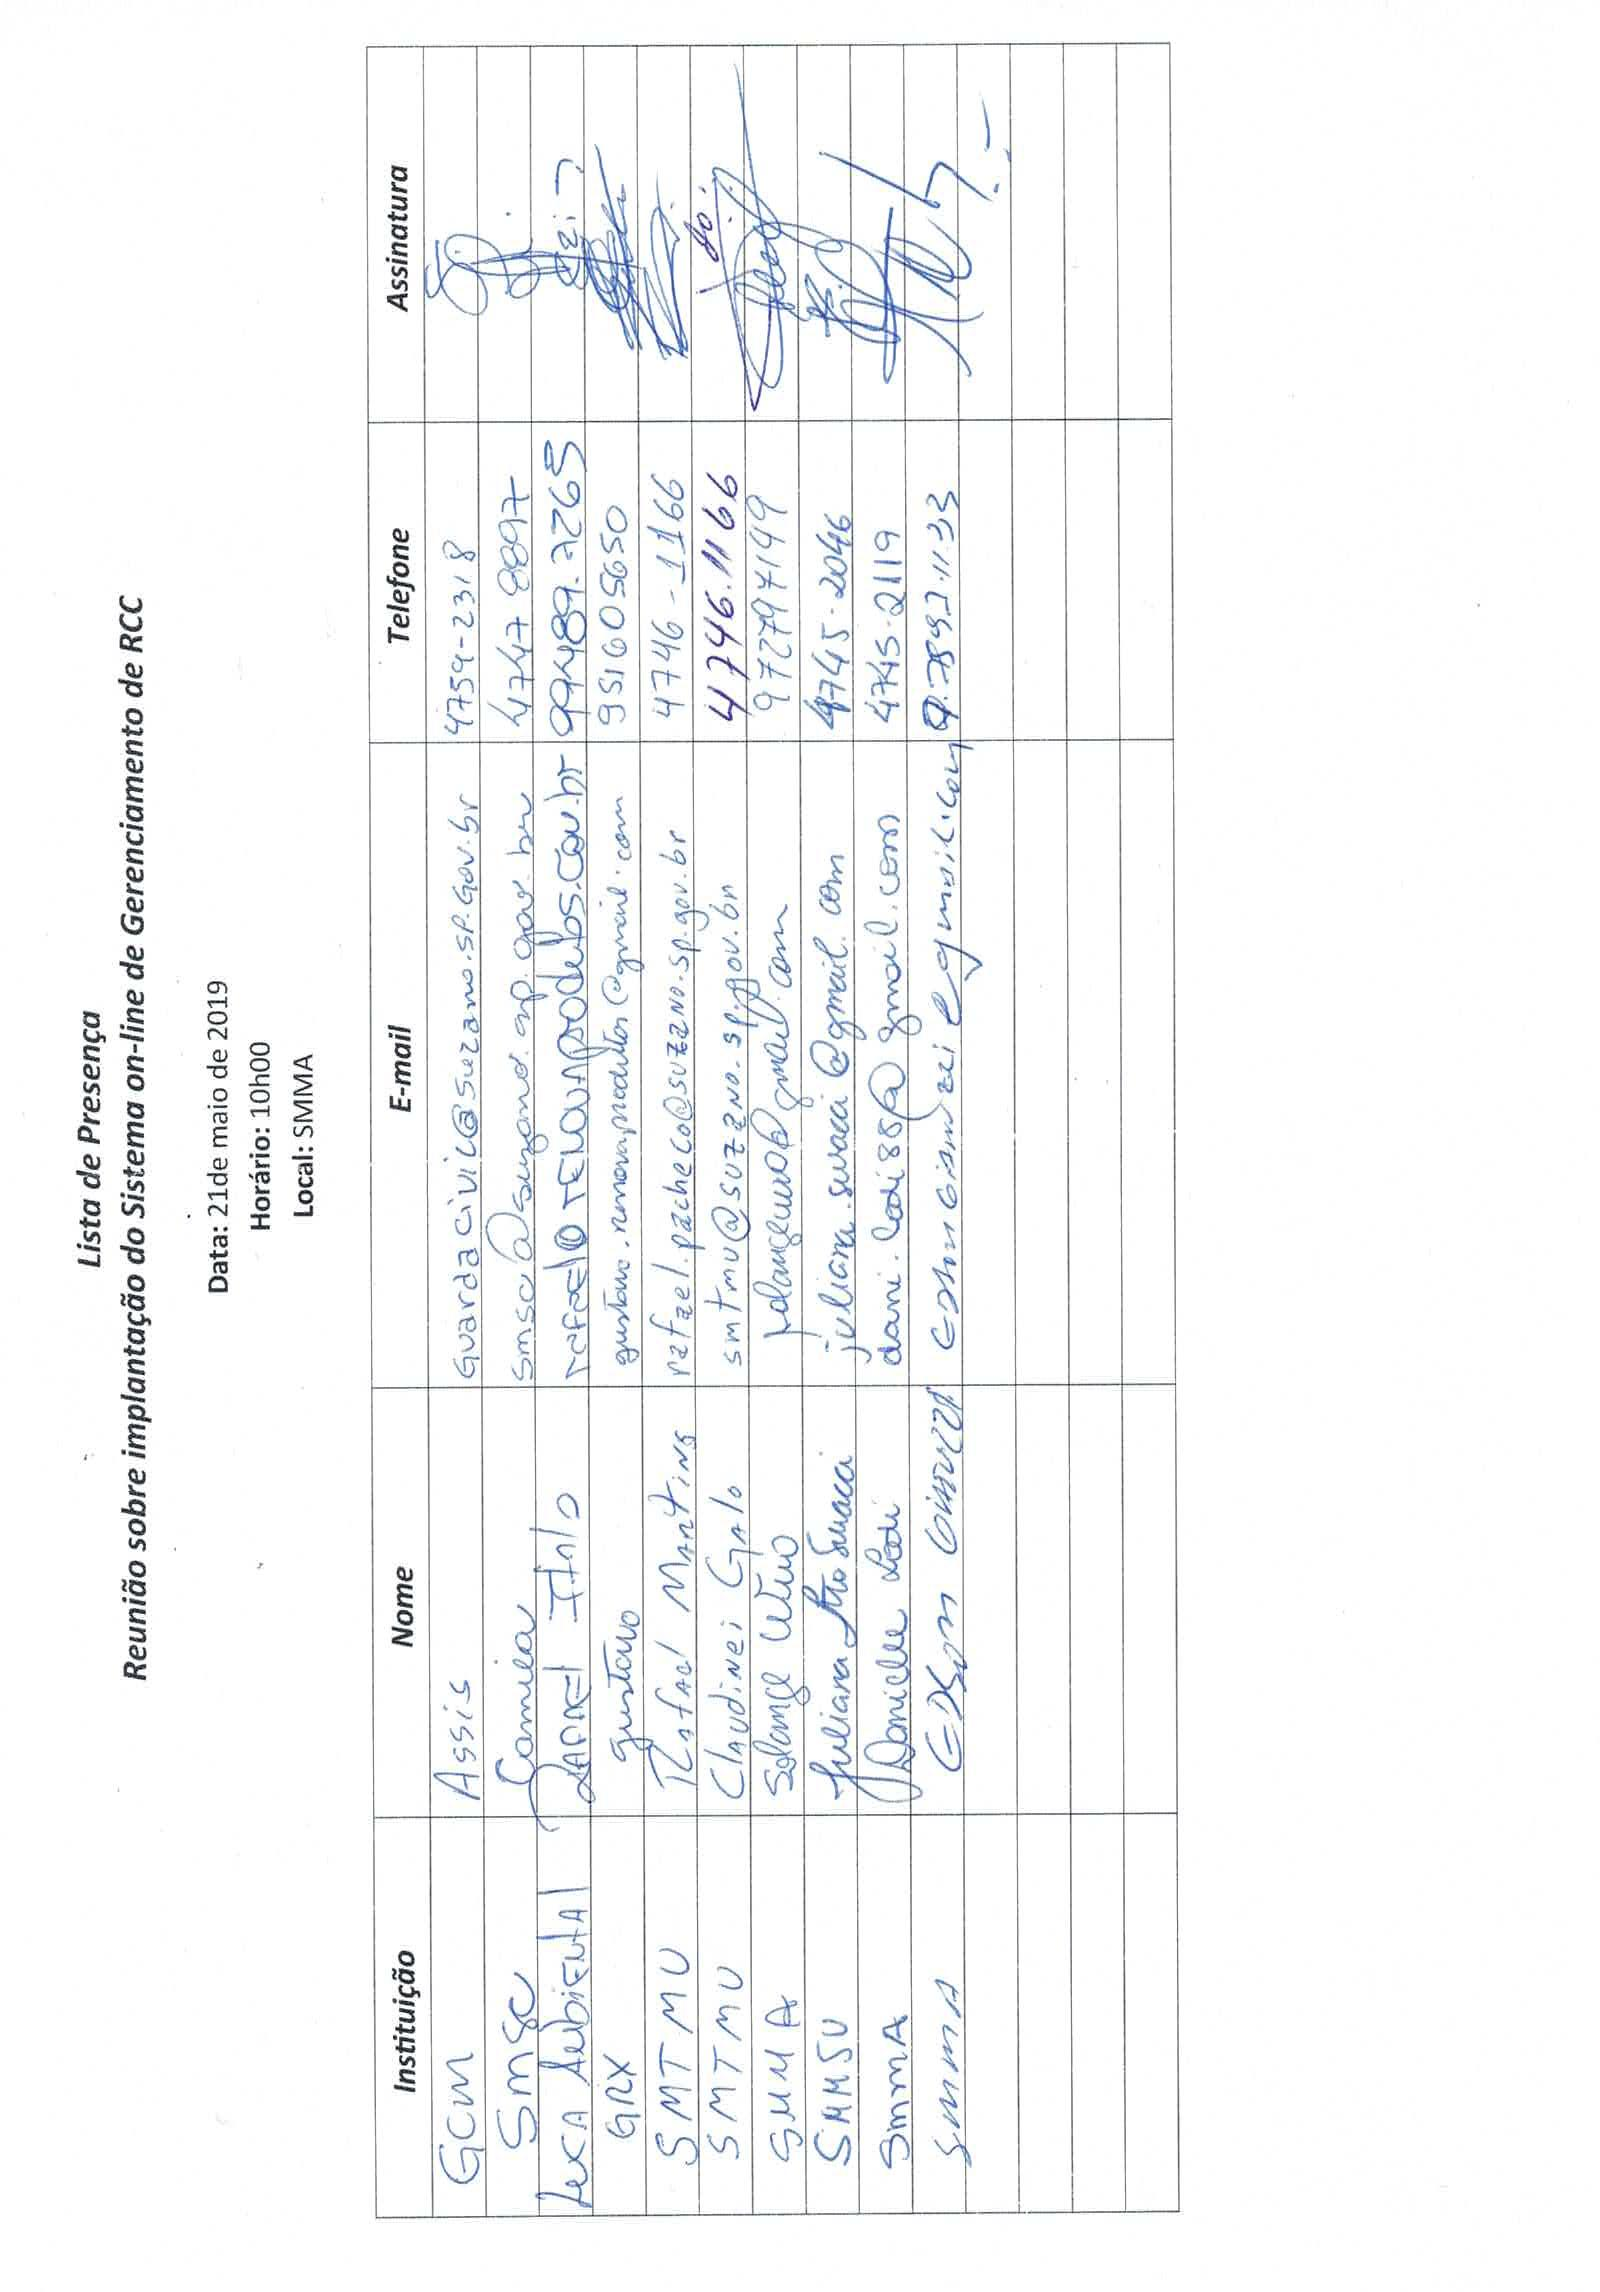 Lista de Presença
Reunião sobre implantação do Sistema on-line de Gerenciamento de RCC
Data: 21de maio de 2019
Horário: 10h00
Local: SMMA
Instituição Nome E-mail Telefone Assinatura
GCM Assis Guardacivil@suzano.sp.Gov.br 4759-2318
SMSC Camila smsc@suzano.sp.gov.br 4747 8897
Ambiental Rafael Italo 99489.7265
GRX Gustavo gustavo.renovaprodutos@gmail.com 951605650
SMTMU Rafael Martins rafael.pacheco@suzano.sp.gov.br 4746-1166
SMTMU Claudinei Galo smtmu@suzano.sp.gov.br 4746.1166
SMMA Solange 972797149
SMMSU Juliana 4745-2046
SMMA Danielle Lodi dani.lodi88@gmail.com 4745-2119
SMMA Edson